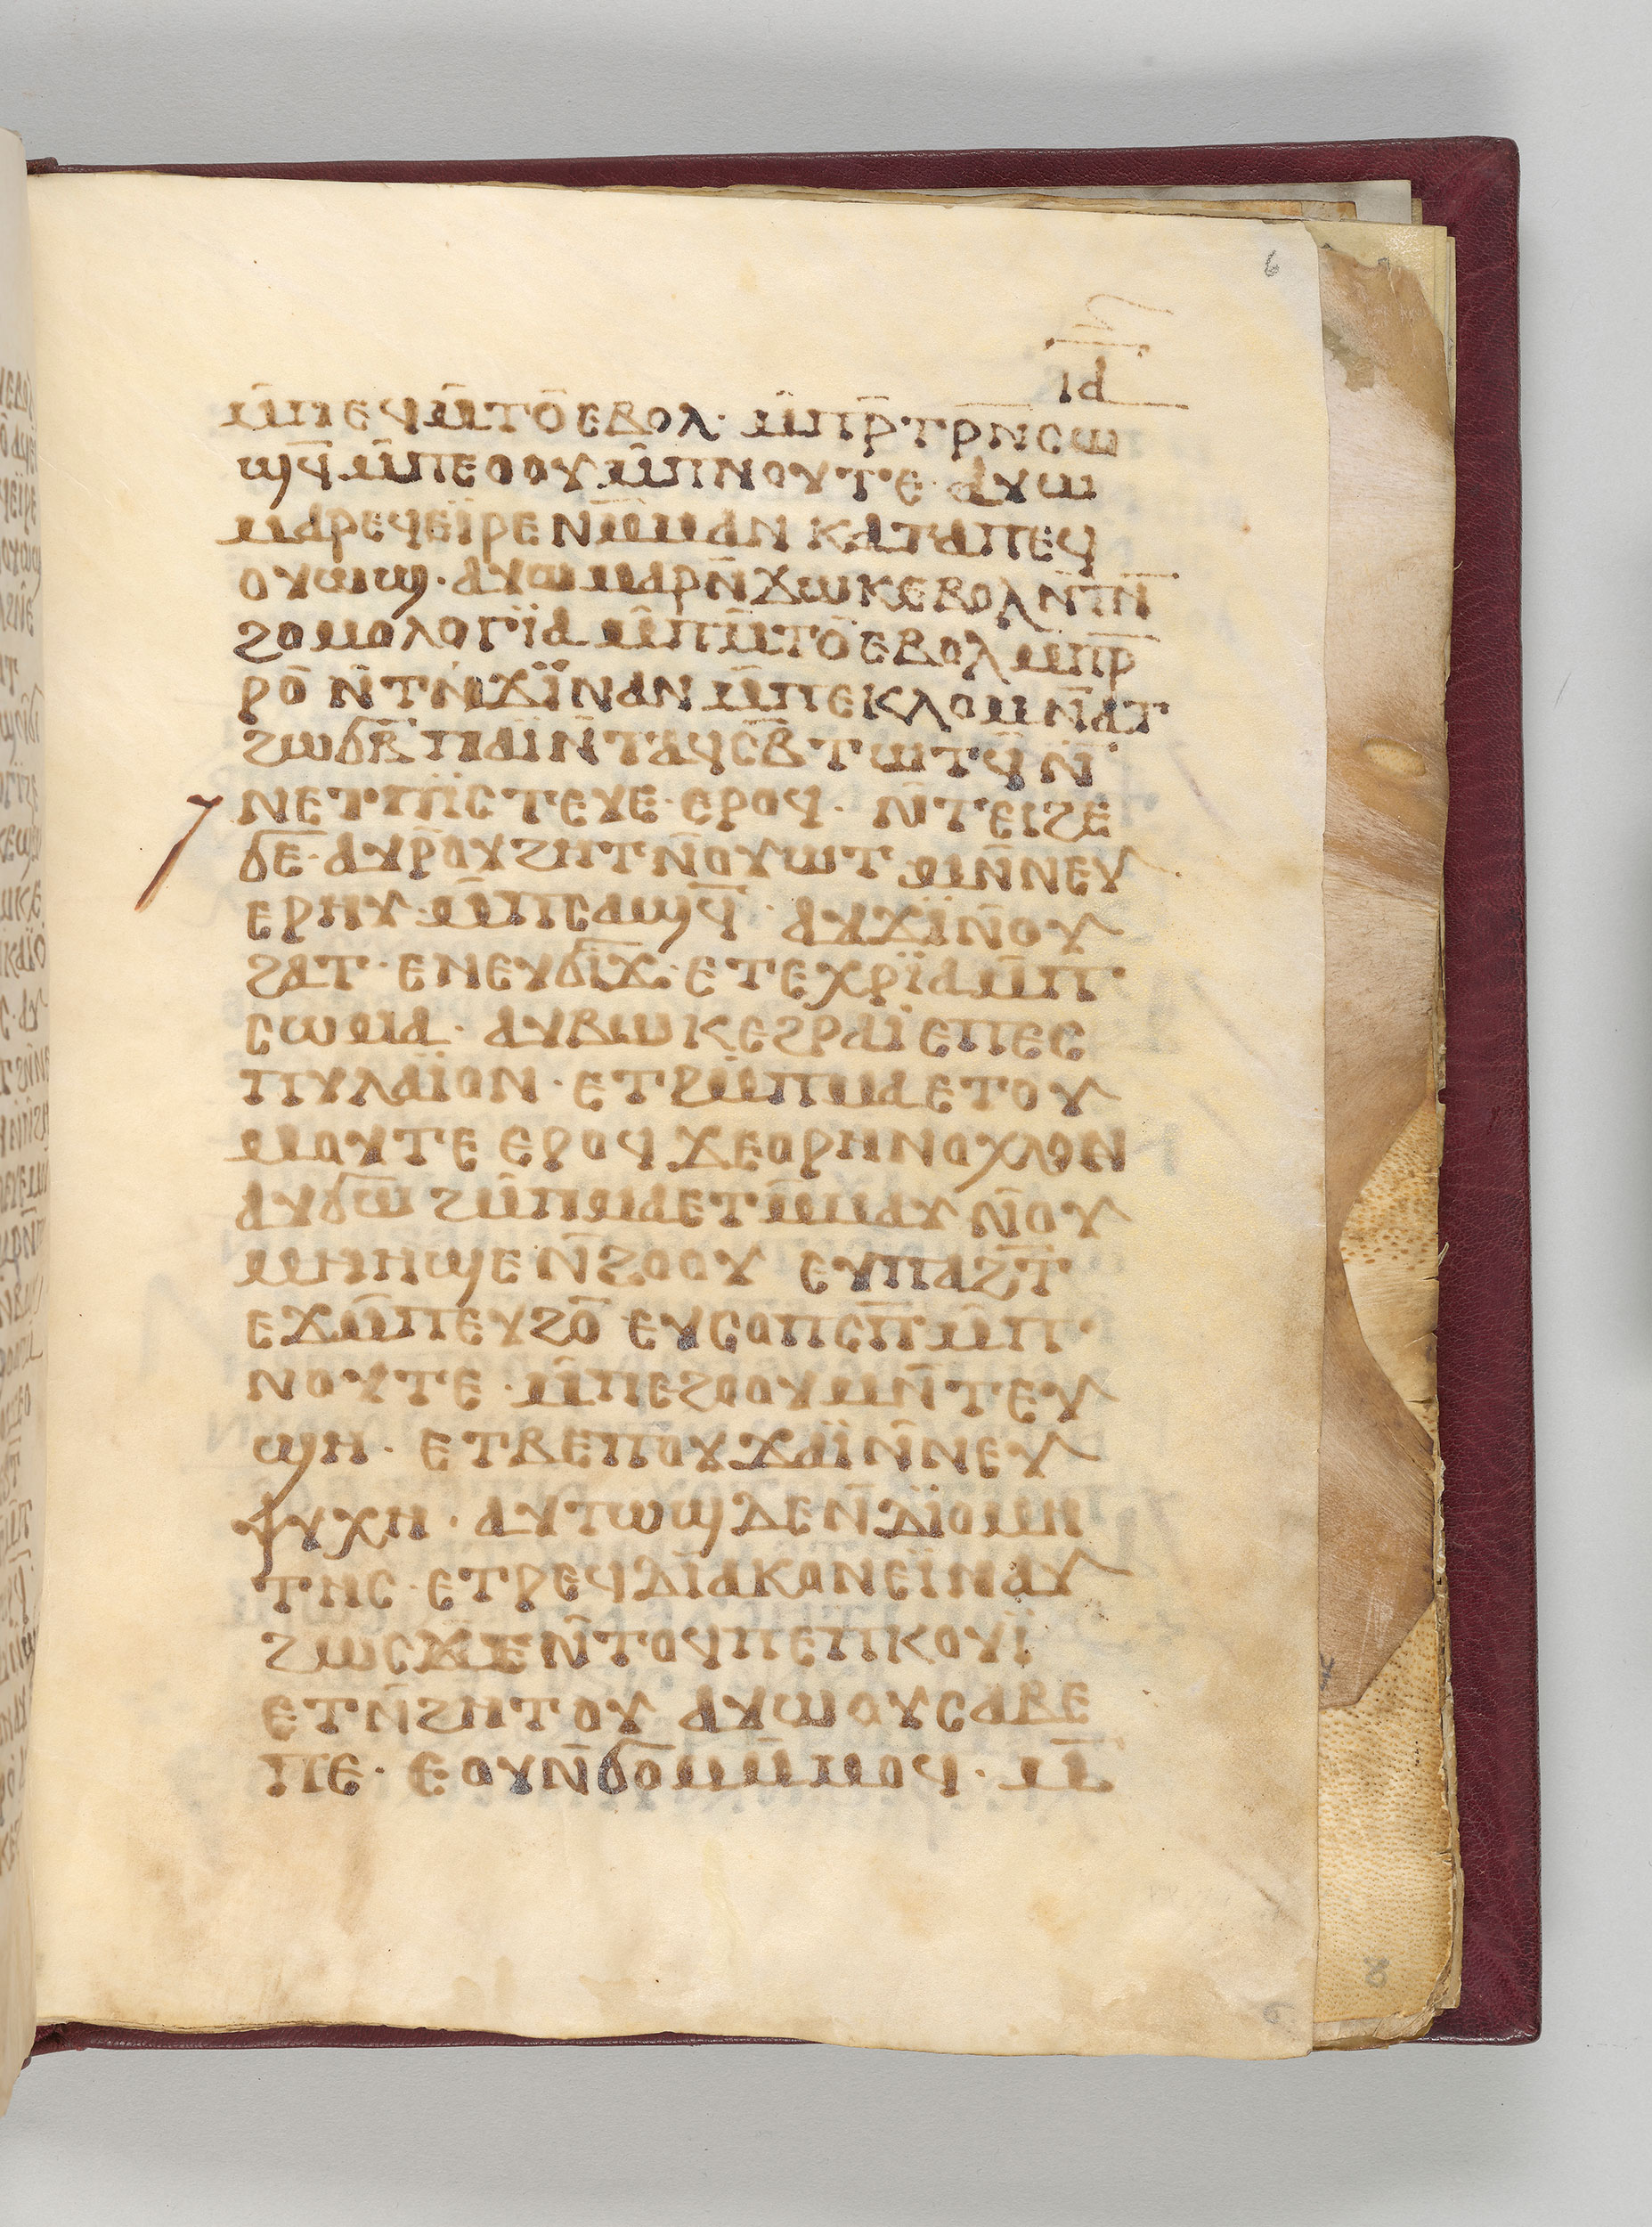 6
ⲓⲁ
ⲙ̄ⲡⲉϥⲙ̄ⲧⲟ̄ⲉⲃⲟⲗ· ⲙ̄ⲡⲣ̄ⲧⲣⲛ̄ⲥⲱ
ϣϥ̄ ⲙ̄ⲡⲉⲟⲟⲩ ⲙ̄ⲡⲛⲟⲩⲧⲉ· ⲁⲩⲱ
ⲙⲁⲣⲉϥⲉⲓ̈ⲣⲉ ⲛⲙ̄ⲙⲁⲛ ⲕⲁⲧⲁⲡⲉϥ
ⲟⲩⲱϣ· ⲁⲩⲱ ⲙⲁⲣⲛ̄ϫⲱⲕ ⲉⲃⲟⲗ ⲛ̄ⲧⲛ̄
ϩⲟⲙⲟⲗⲟⲅⲓ̈ⲁ ⲙ̄ⲡⲙ̄ⲧⲟ̄ ⲉⲃⲟⲗ ⲙⲡⲣ̄
ⲣⲟ̄ ⲛ̄ⲧⲛ̄ϫⲓ̈ ⲛⲁⲛ ⲙ̄ⲡⲉⲕⲗⲟⲙ ⲛ̄ⲁⲧ
ϩⲱϭⲃ̄ ⲡⲁⲓ̈ ⲛ̄ⲧⲁϥⲥⲃ̄ⲧⲱⲧϥ̄ ⲛ̄
ⲛⲉⲧⲡⲓ̈ⲥⲧⲉⲩⲉ· ⲉⲣⲟϥ· ⲛ̄ⲧⲉⲓϩⲉ
ϭⲉ· ⲁⲩⲣ̄ⲟⲩϩⲏⲧ ⲛ̄ⲟⲩⲱⲧ ⲙⲛ̄ⲛⲉⲩ
ⲉⲣⲏⲩ· ⲙ̄ⲡⲥⲁϣϥ̄· ⲁⲩϫⲓ̈ ⲛ̄ⲟⲩ
ϩⲁⲧ· ⲉⲛⲉⲩϭⲓϫ· ⲉⲧⲉⲭⲣⲓ̈ⲁ ⲙ̄ⲡ
ⲥⲱⲙⲁ· ⲁⲩⲃⲱⲕ ⲉϩⲣⲁⲓ̈ ⲉⲡⲉⲥ
ⲡⲩⲗⲁⲓ̈ⲟⲛ· ⲉⲧϩⲙ̄ⲡⲙⲁ ⲉⲧⲟⲩ
ⲙⲟⲩⲧⲉ ⲉⲣⲟϥ ϫⲉⲟⲣⲏⲛⲟⲭⲗⲟⲛ
ⲁⲩϭⲱ ϩⲙ̄ⲡⲙⲁ ⲉⲧⲙ̄ⲙⲁⲩ ⲛ̄ⲟⲩ
ⲙⲏⲏϣⲉ ⲛ̄ϩⲟⲟⲩ ⲉⲩⲡⲁϩⲧ̄
ⲉϫⲙ̄ⲡⲉⲩϩⲟ̄ ⲉⲩⲥⲟⲡⲥⲡ̄ ⲙ̄ⲡ
ⲛⲟⲩⲧⲉ· ⲙ̄ⲡⲉϩⲟⲟⲩ ⲙⲛ̄ⲧⲉⲩ
ϣⲏ· ⲉⲧⲃⲉⲡⲟⲩϫⲁⲓ̈ ⲛ̄ⲛⲉⲩ
ⲯⲩⲭⲏ· ⲁⲩⲧⲱϣ ⲇⲉ ⲛ̄ⲇⲓ̈ⲟⲙⲏ
ⲧⲏⲥ· ⲉⲧⲣⲉϥⲇⲓⲁⲕⲟⲛⲉⲓ̈ ⲛⲁⲩ
ϩⲱⲥ ϫⲉ ⲛ̄ⲧⲟϥ ⲡⲉ ⲡⲕⲟⲩⲓ̈
ⲉⲧⲛ̄ϩⲏⲧⲟⲩ ⲁⲩⲱ ⲟⲩⲥⲁⲃⲉ
ⲡⲉ· ⲉⲟⲩⲛ̄ϭⲟⲙ ⲙ̄ⲙⲟϥ· ⲙ̄